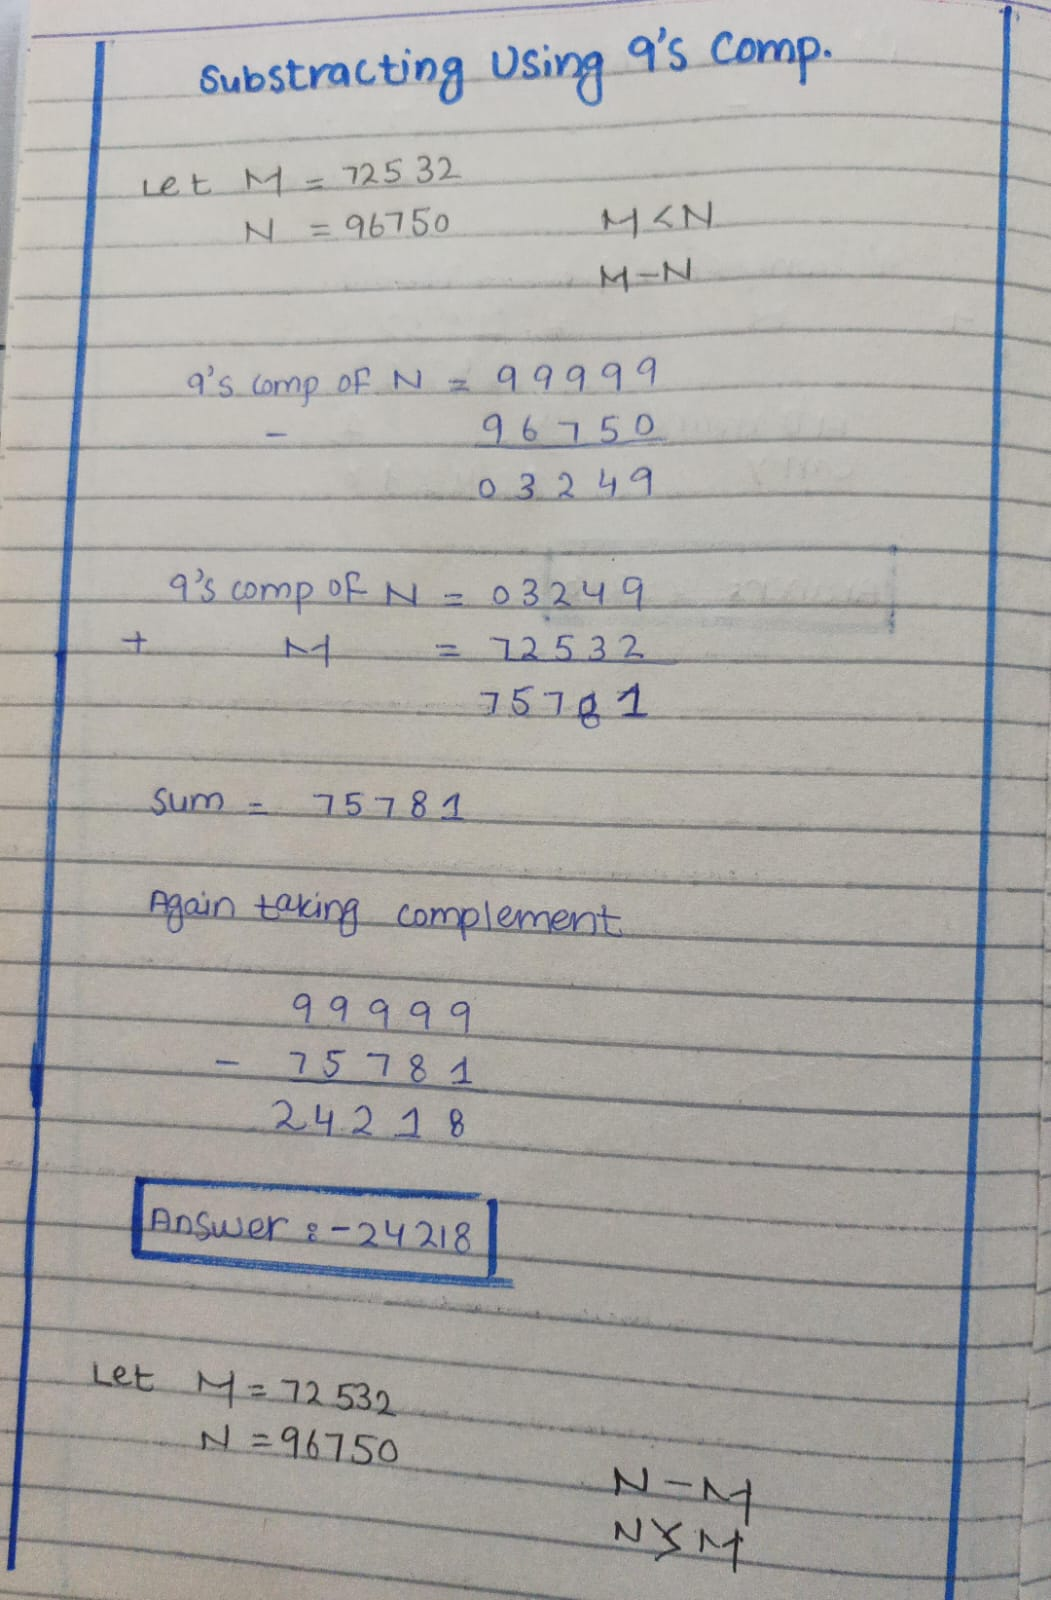 Substracting Using 9's Comp.
Let M = 72532
N = 96750 M<N
M-N
9's comp of N = 99999
- 96750
03249
9's comp of N = 03249
+ M = 72532
75781
Sum = 75781
Again taking complement
99999
- 75781
24218
Answer : -24218
Let M = 72532
N = 96750
N-M
N>M